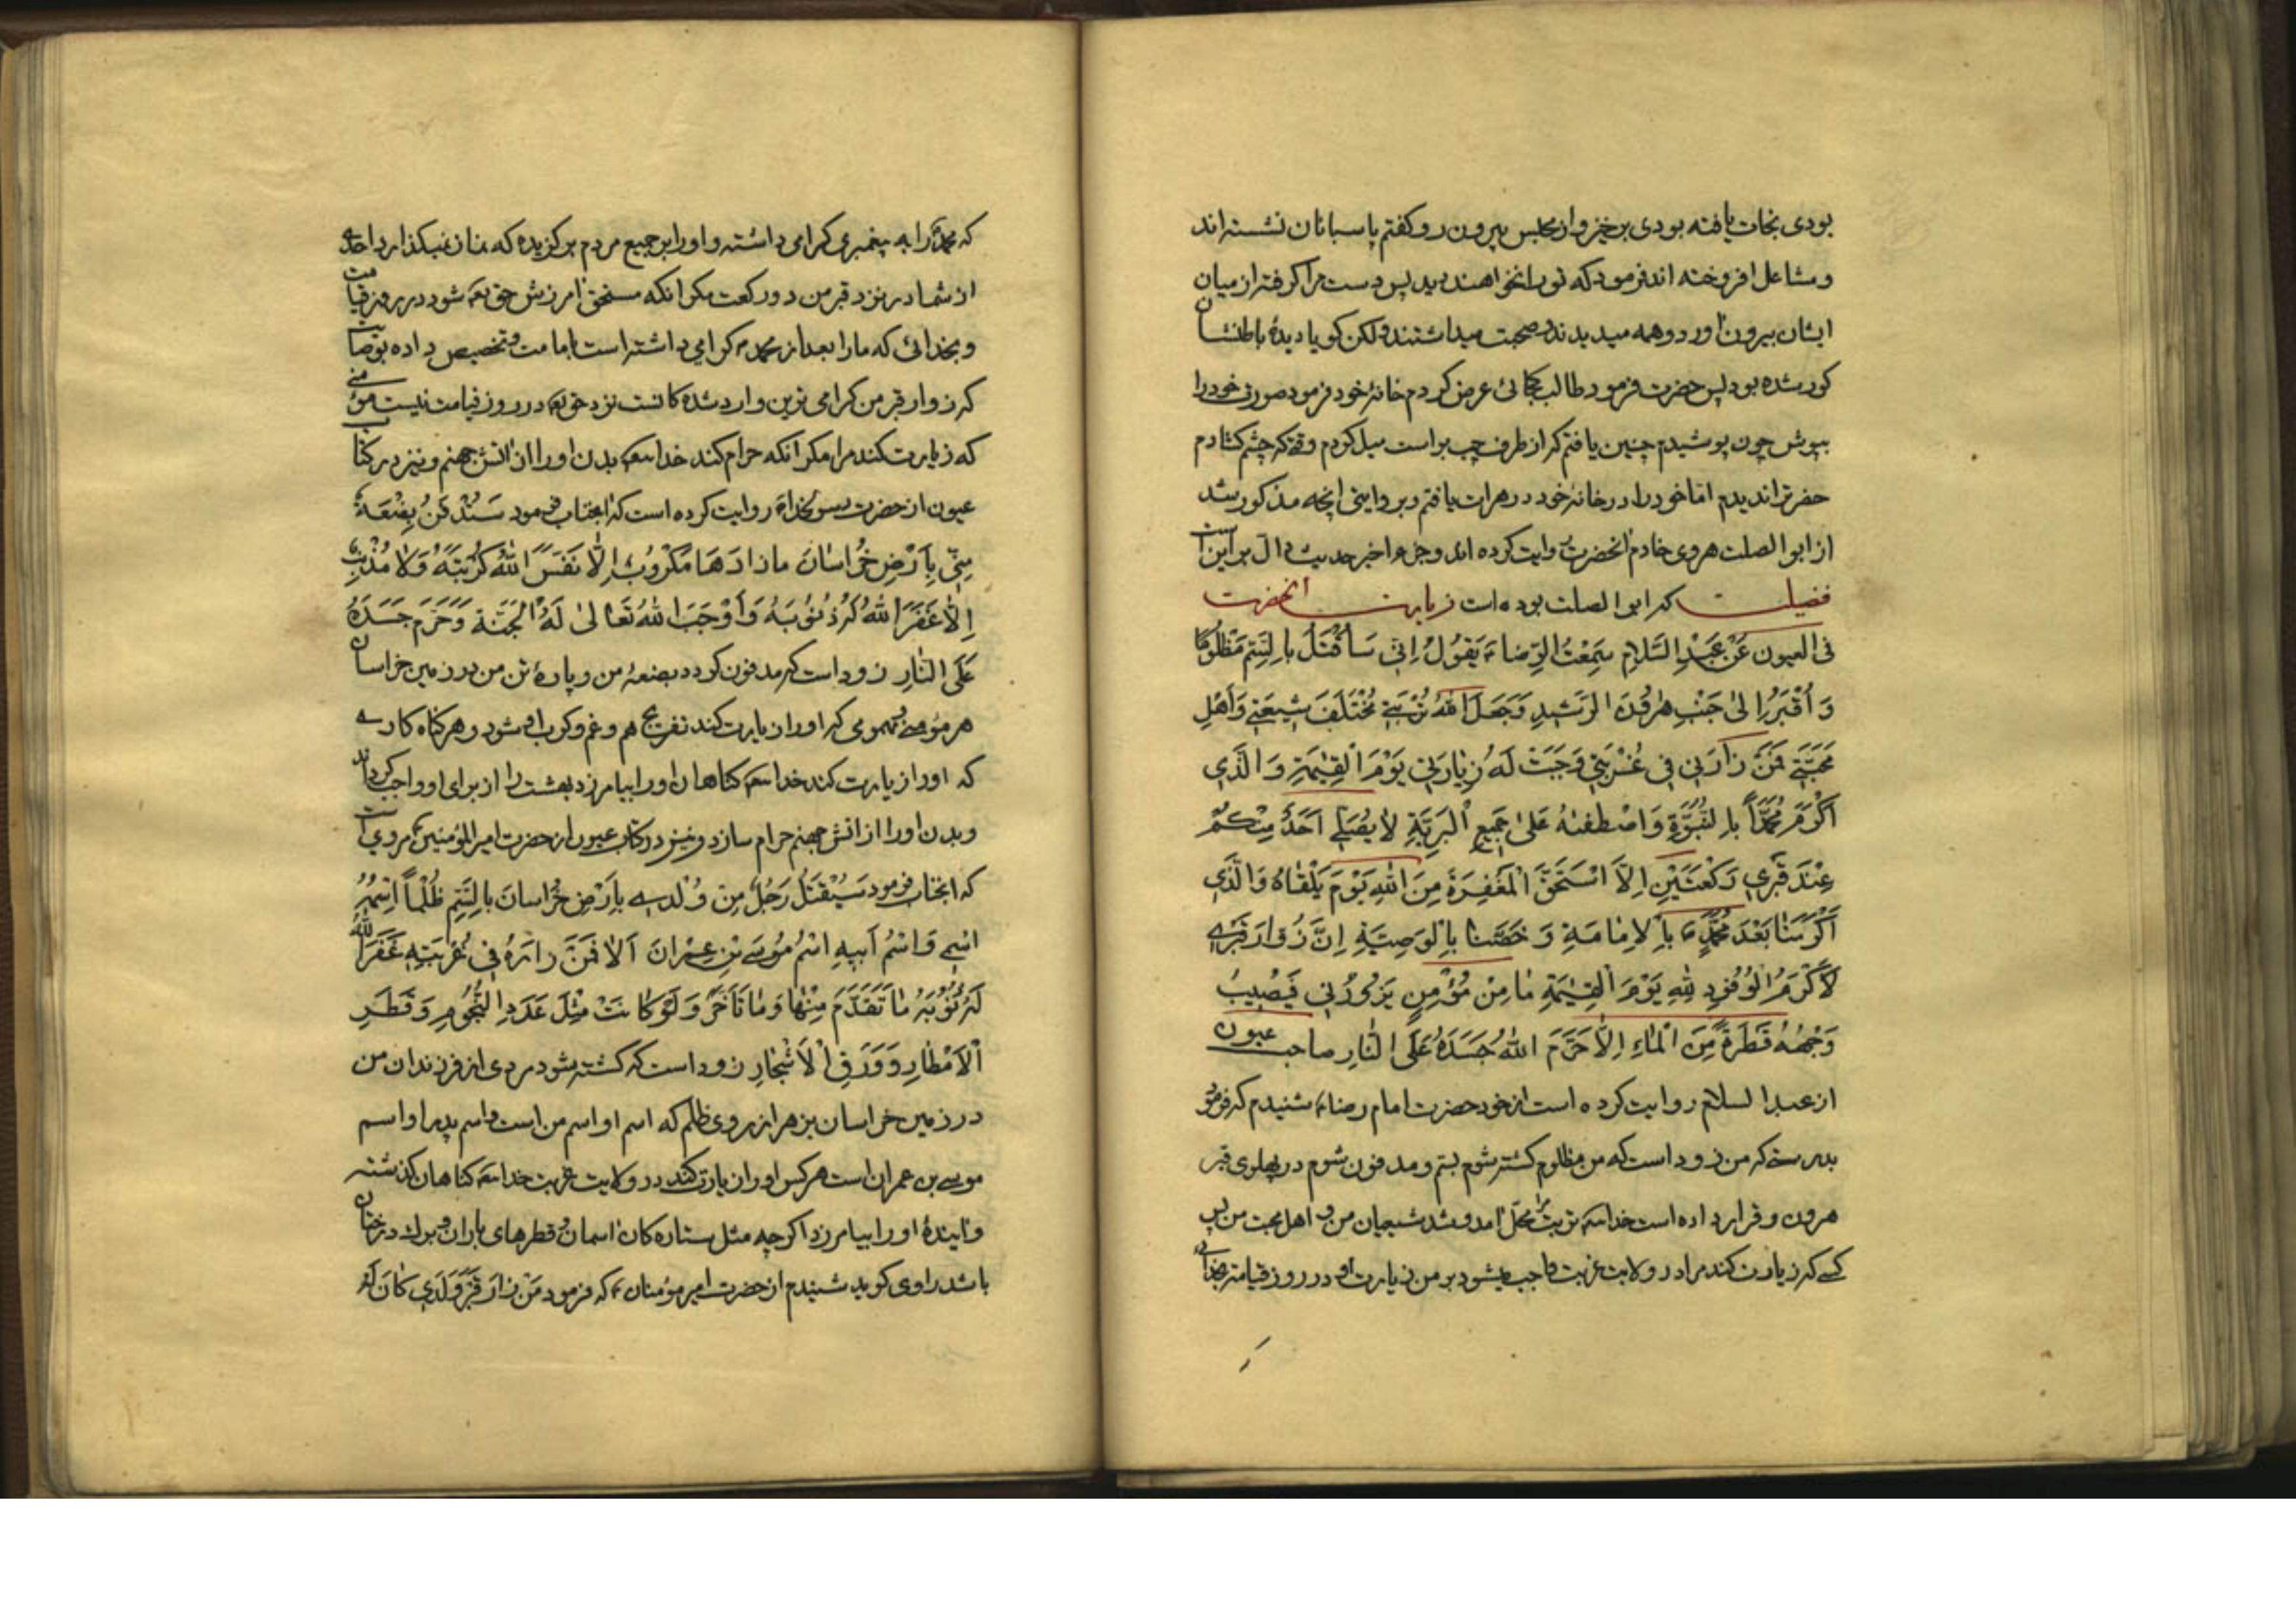 بودی نجات یافته بودی برخیز و از مجلس بیرون رو گفتم پاسبانان نشسته اند
و مشاعل افروخته اند فرمود که تو را نخواهند دید پس دست مرا گرفته از میان
ایشان بیرون آورد و همه میدیدند و صحبت میداشتند ولکن گویا دیدهٔ باطنشان
کور شده بود پس حضرت فرمود طالب کجائی عرض کردم خانهٔ خود فرمود صورت خود را
بپوش چون پوشیدم چنین یافتم که از طرف چپ براست میل کردم وقتی که چشم گشادم
حضرترا ندیدم اما خود را در خانهٔ خود در هرات یافتم و بروایتی آنچه مذکور شد
از ابو الصلت هروی خادم آنحضرت روایت کرده اند و جزء اخیر حدیث دال بر این است
که ابو الصلت بوده است فضیلت زیارت آنحضرت
فی العیون عَنْ عَبْدِ السَّلامِ سَمِعْتُ الرِّضا ع یَقُولُ اِنّی سَاُقْتَلُ بِالسَّمِّ مَظْلُومًا
وَ اُقْبَرُ اِلیٰ جَنْبِ هٰرُونَ الرَشیدِ وَ جَعَلَ اللهُ تُرْبَتی مُخْتَلَفَ شیعَتی وَ اَهْلِ
مَحَبَّتی فَمَنْ زارَنی فی غُرْبَتی وَجَبَتْ لَهُ زِیارَتی یَوْمَ الْقِیٰمَةِ وَ الَّذی
اَکْرَمَ مُحَمَّدًا بِالنُّبُوَّةِ وَ اصْطَفٰیهُ عَلیٰ جَمیعِ الْبَرِیَّةِ لا یُصَلّی اَحَدٌ مِنْکُمْ
عِنْدَ قَبْری رَکْعَتَیْنِ اِلّا اسْتَحَقَّ الْمَغْفِرَةَ مِنَ اللهِ یَوْمَ یَلْقاهُ وَ الَّذی
اَکْرَمَنا بَعْدَ مُحَمَّدٍ ص بِالْاِمامَةِ وَ خَصَّنا بِالْوَصِیَّةِ اِنَّ زُوّارَ قَبْری
لَاَکْرَمُ الْوُفُودِ لِلّهِ یَوْمَ الْقِیٰمَةِ ما مِنْ مُؤْمِنٍ یَزُورُنی فَیُصیبُ
وَجْهَهُ قَطْرَةٌ مِنَ الْماءِ اِلّا حَرَّمَ اللهُ جَسَدَهُ عَلَی النّارِ صاحب عیون
از عبد السلام روایت کرده است از خود حضرت امام رضا ع شنیدم که فرمود
بدرستی که من زود است که من مظلوم کشته شوم بسم و مدفون شوم در پهلوی قبر
هرون و قرار داده است خدا تربت مرا محل آمد و شد شیعیان من و اهل محبت من پس
کسی که زیارت کند مرا در ولایت غربت واجب میشود بر من زیارت او در روز قیامت بخدائی
که محمد را به پیغمبری گرامی داشته و او را بر جمیع مردم برگزیده که نماز نمیگذارد احدی
از شما در نزد قبر من دو رکعت مگر آنکه مستحق آمرزش حق تعم شود در روز قیامت
و بخدائی که ما را بعد از محمد ص گرامی داشته است بامامت و تخصیص داده بوصایت
که زوار قبر من گرامی ترین وارد شدگانست نزد حق تعم در روز قیامت نیست مؤمنی
که زیارت کند مرا مگر آنکه حرام کند خدا بدن او را از آتش جهنم و نیز در کتاب
عیون از حضرت رسول خدا ص روایت کرده است که آنجناب فرمود سَتُدْفَنُ بِضْعَةٌ
مِنّی بِاَرْضِ خُراسانَ ما زادَها مَکْرُوبٌ اِلّا نَفَّسَ اللهُ کُرْبَتَهُ وَلا مُذْنِبٌ
اِلّا غَفَرَ اللهُ لَهُ ذُنُوبَهُ وَ اَوْجَبَ اللهُ تَعالیٰ لَهُ الْجَنَّةَ وَ حَرَّمَ جَسَدَهُ
عَلَی النّارِ زود است که مدفون گردد بضعهٔ من و پارهٔ تن من در زمین خراسان
هر مؤمن مهمومی که او را زیارت کند تفریج هم و غم و کرب او شود و هر گناه کاری
که او را زیارت کند خدا گناهان او را بیامرزد بهشت را از برای او واجب گرداند
و بدن او را از آتش جهنم حرام سازد و نیز در کتاب عیون از حضرت امیر المؤمنین ع مروی است
که آنجناب فرمود سَیُقْتَلُ رَجُلٌ مِنْ وُلْدی بِاَرْضِ خُراسانَ بِالسَّمِّ ظُلْماً اِسْمُهُ
اسْمی وَ اسْمُ اَبیهِ اسْمُ مُوسَی بْنِ عِمْرانَ اَلا فَمَنْ زارَهُ فی غُرْبَتِهِ غَفَرَ اللهُ
لَهُ ذُنُوبَهُ ما تَقَدَّمَ مِنْها وَ ما تَاَخَّرَ وَ لَوْ کانَتْ مِثْلَ عَدَدِ النُّجُومِ وَ قَطَرِ
الْاَمْطارِ وَ وَرَقِ الْاَشْجارِ زود است که کشته شود مردی از فرزندان من
در زمین خراسان بزهر از روی ظلم که اسم او اسم من است و اسم پدر او اسم
موسی بن عمران است هر کس او را زیارت کند در ولایت غربت خدا گناهان گذشته
و آیندهٔ او را بیامرزد اگرچه مثل ستاره گان آسمان و قطرهای باران و برک درختان
باشد راوی گوید شنیدم از حضرت امیر مؤمنان ع که فرمود مَنْ زارَ قَبْرَ وَلَدی کانَ لَهُ